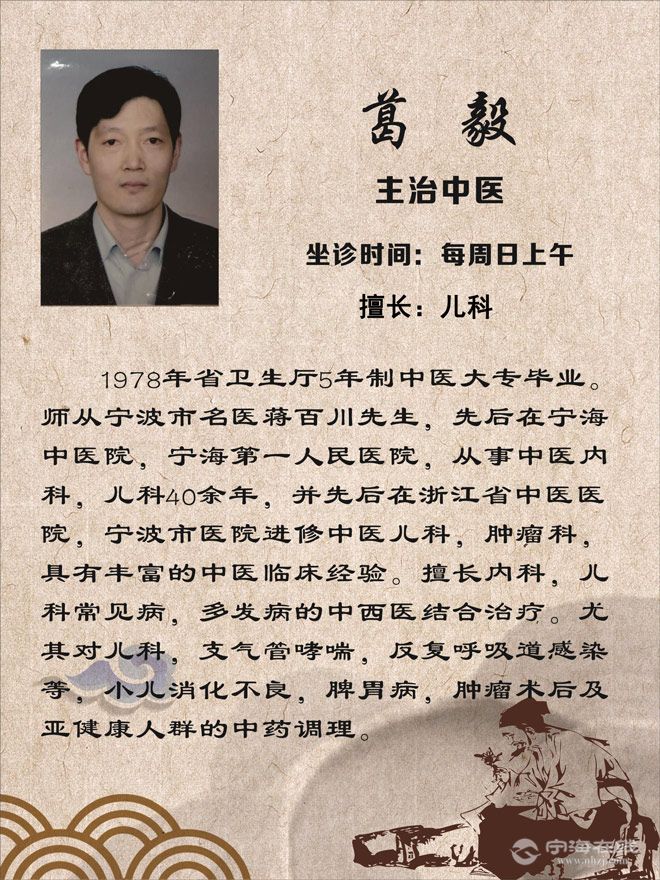 葛 毅
主治中医
坐诊时间：每周日上午
擅长：儿科
1978年省卫生厅5年制中医大专毕业。
师从宁波市名医蒋百川先生，先后在宁海
中医院，宁海第一人民医院，从事中医内
科，儿科40余年，并先后在浙江省中医医
院，宁波市医院进修中医儿科，肿瘤科，
具有丰富的中医临床经验。擅长内科，儿
科常见病，多发病的中西医结合治疗。尤
其对儿科，支气管哮喘，反复呼吸道感染
等，小儿消化不良，脾胃病，肿瘤术后及
亚健康人群的中药调理。
宁海在线
www.nhzj.com